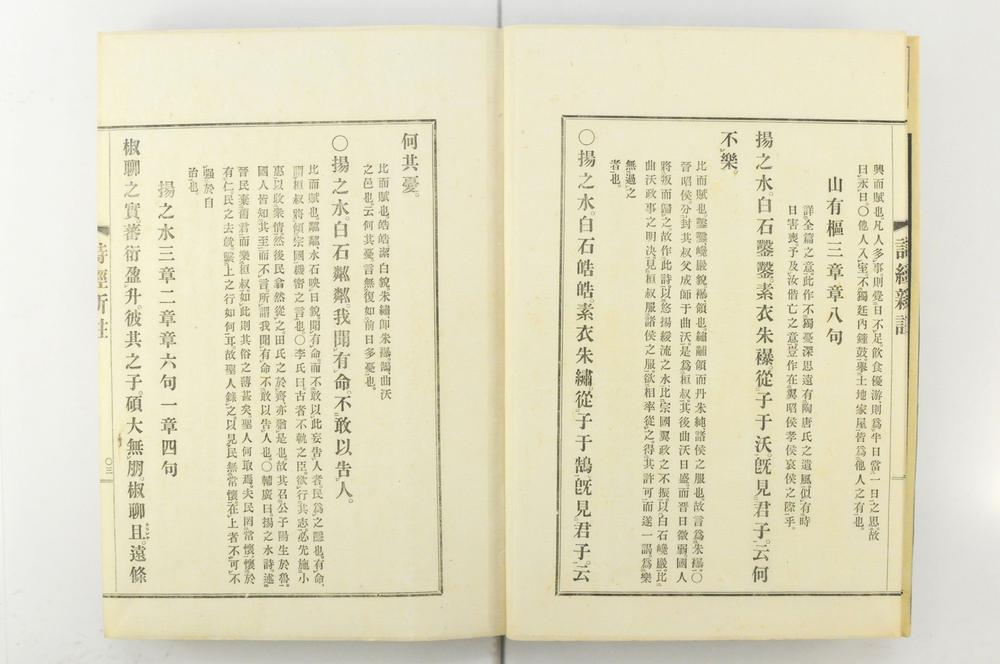 興而賦也。凡人多事則覺日不足。飲食優游則爲半日當一日之思。故
曰永日。〇他人入室不獨廷內鐘鼓。舉土地家屋皆爲他人之有也。
山有樞三章章八句
詳全篇之意。此作不獨憂深思遠。有陶唐氏之遺風。似有時
日害喪予及汝偕亡之意。豈作在翼昭侯孝侯哀侯之際乎。
揚之水。白石鑿鑿。素衣朱襮。從子于沃。既見君子。云何
不樂。
比而賦也。鑿鑿巉巖貌。襮領也。繡黼領而丹朱純。諸侯之服也。故言爲朱襮。〇
晉昭侯。分封其叔父成師于曲沃。是爲桓叔。其後曲沃日盛。而晉日微弱。國人
將叛而歸之。故作此詩。以悠揚緩流之水比宗國翼政之不振。以白石巉巖。比
曲沃政事之明決。見桓叔服諸侯之服。欲相率從之。得其許可。而遂一謁。爲樂
無過之
者也。
〇揚之水。白石皓皓。素衣朱繡。從子于鵠。既見君子。云
何其憂。
比而賦也。皓皓潔白貌。朱繡卽朱襮。鵠曲沃
之邑也。云何其憂。言無復如前日多憂也。
〇揚之水。白石粼粼。我聞有命。不敢以告人。
比而賦也。粼粼水石映日貌。聞有命而不敢以此妄告人者。民爲之隱也。有命。
謂桓叔將傾宗國機密之言也。〇李氏曰。古者不軌之臣。欲行其志。必先施小
惠以收衆情。然後民翕然從之。田氏之於齊亦猶是也。故其召公子陽生於魯。
國人皆知其至而不言。所謂我聞有命。不敢以告人也。〇輔廣曰。揚之水詩。述
晉民棄舊君而樂桓叔如此。則其俗之薄甚矣。聖人何取焉。夫民罔常懷。懷於
有仁。民之去就繫上之行如何耳。故聖人錄之。以見民無常懷。在上者不可不
強於自
治也。
揚之水三章二章章六句一章四句
椒聊之實。蕃衍盈升。彼其之子。碩大無朋。椒聊且。遠條
詩經新註